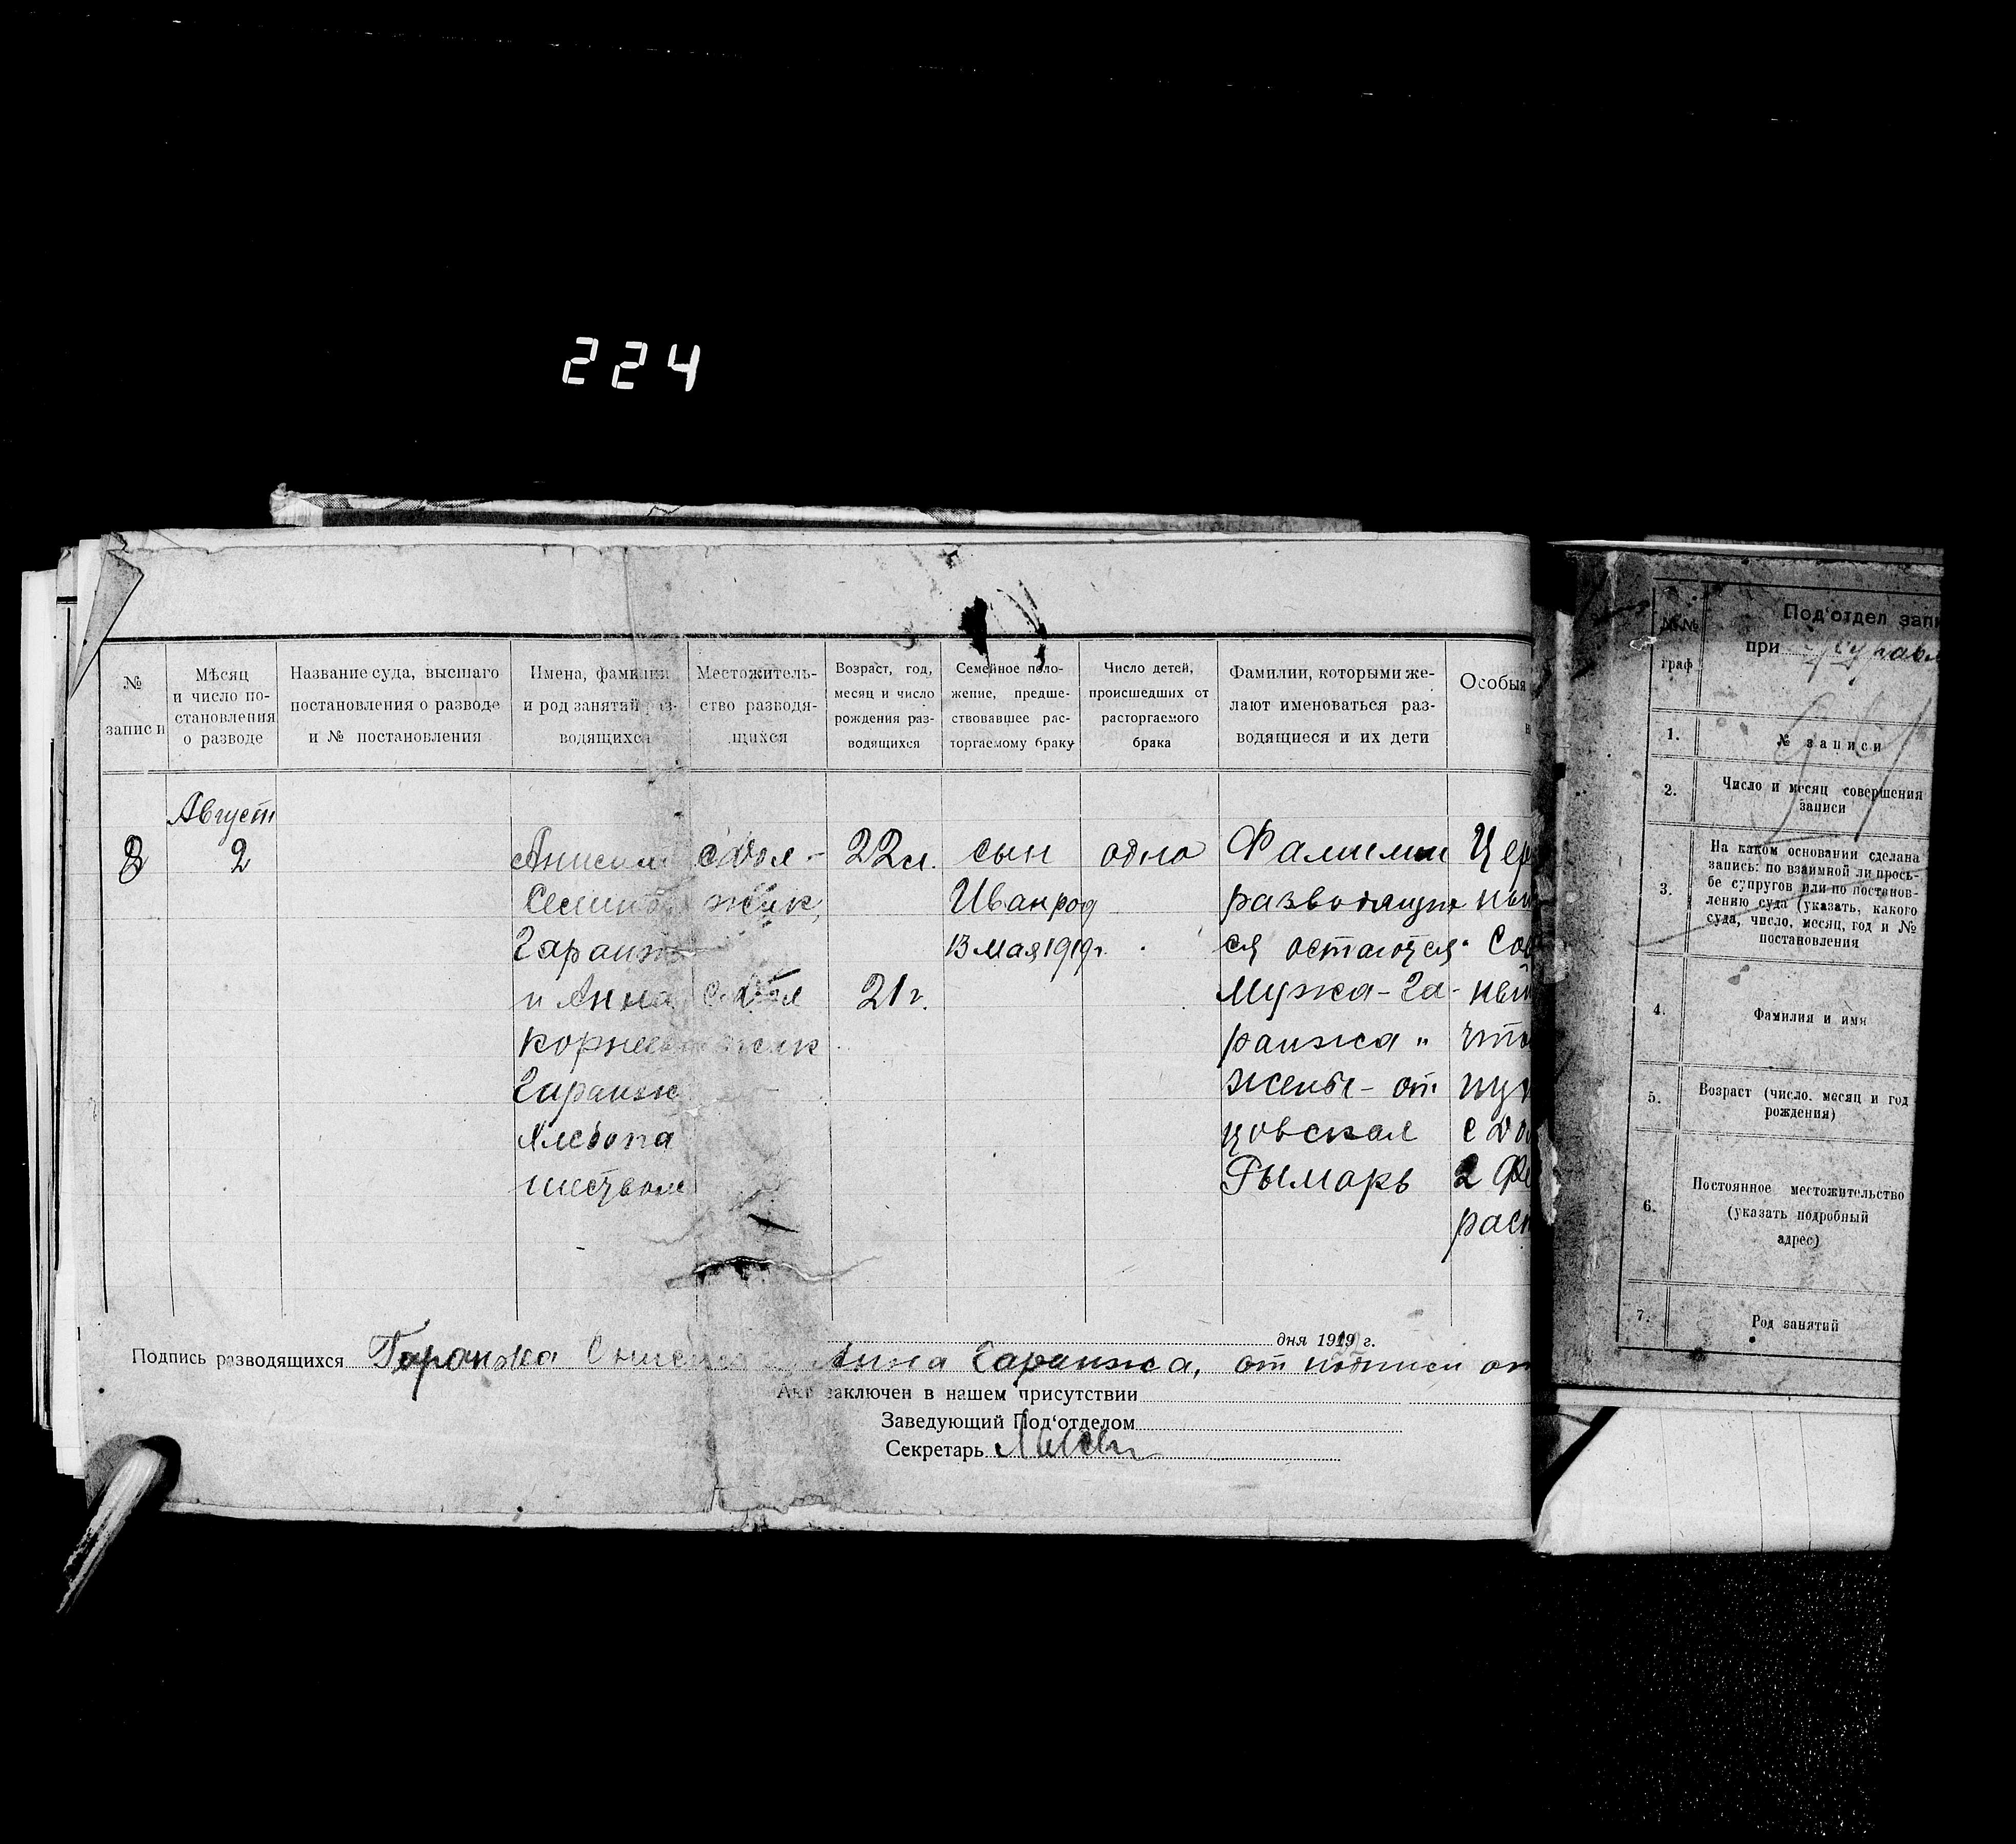 224
№ записи
Мѣсяц и число по-становления о разводе
Название суда, высшаго постановления о разводе и № постановления
Имена, фамилии и род занятий раз-водящихся
Местожитель-ство разводя-щихся
Возраст, год, месяц и число рождения раз-водящихся
Семейное поло-жение, предше-ствовавшее рас-торгаемому браку
Число детей, происшедших от расторгаемого брака
Фамилии, которыми же-лают именоваться раз-водящиеся и их дети
Особыя
8
Август
2
Анисим
Семин
Гаранж
и Анна
Корнеев
Гаранж
Хлебопа
шеством
с Дол-
жик,
с Дол
жик
22 л.
21 г.
сын
Иван род
13 Мая 1919 г.
одно
Фамилии
разводящих
ся остаются
Мужа - Га-
ранжа "
жены - от
цовская
Рымарь
Цер
ный
Сов
ный
что
с Дол
2 Фе
рас
дня 1919 г.
Подпись разводящихся Гаранжа Анисим Анна Гаранжа, от подписи от
Акт заключен в нашем присутствии
Заведующий Под'отделом
Секретарь
№№ граф
Под'отдел запи
при
1. № записи
2. Число и месяц совершения
записи
3. На каком основании сделана
запись: по взаимной ли прось-
бе супругов или по постанов-
лению суда (указать, какого
суда, число, месяц, год и №
постановления
4. Фамилия и имя
5. Возраст (число, месяц и год
рождения)
6. Постоянное местожительство
(указать подробный
адрес)
7. Род занятий